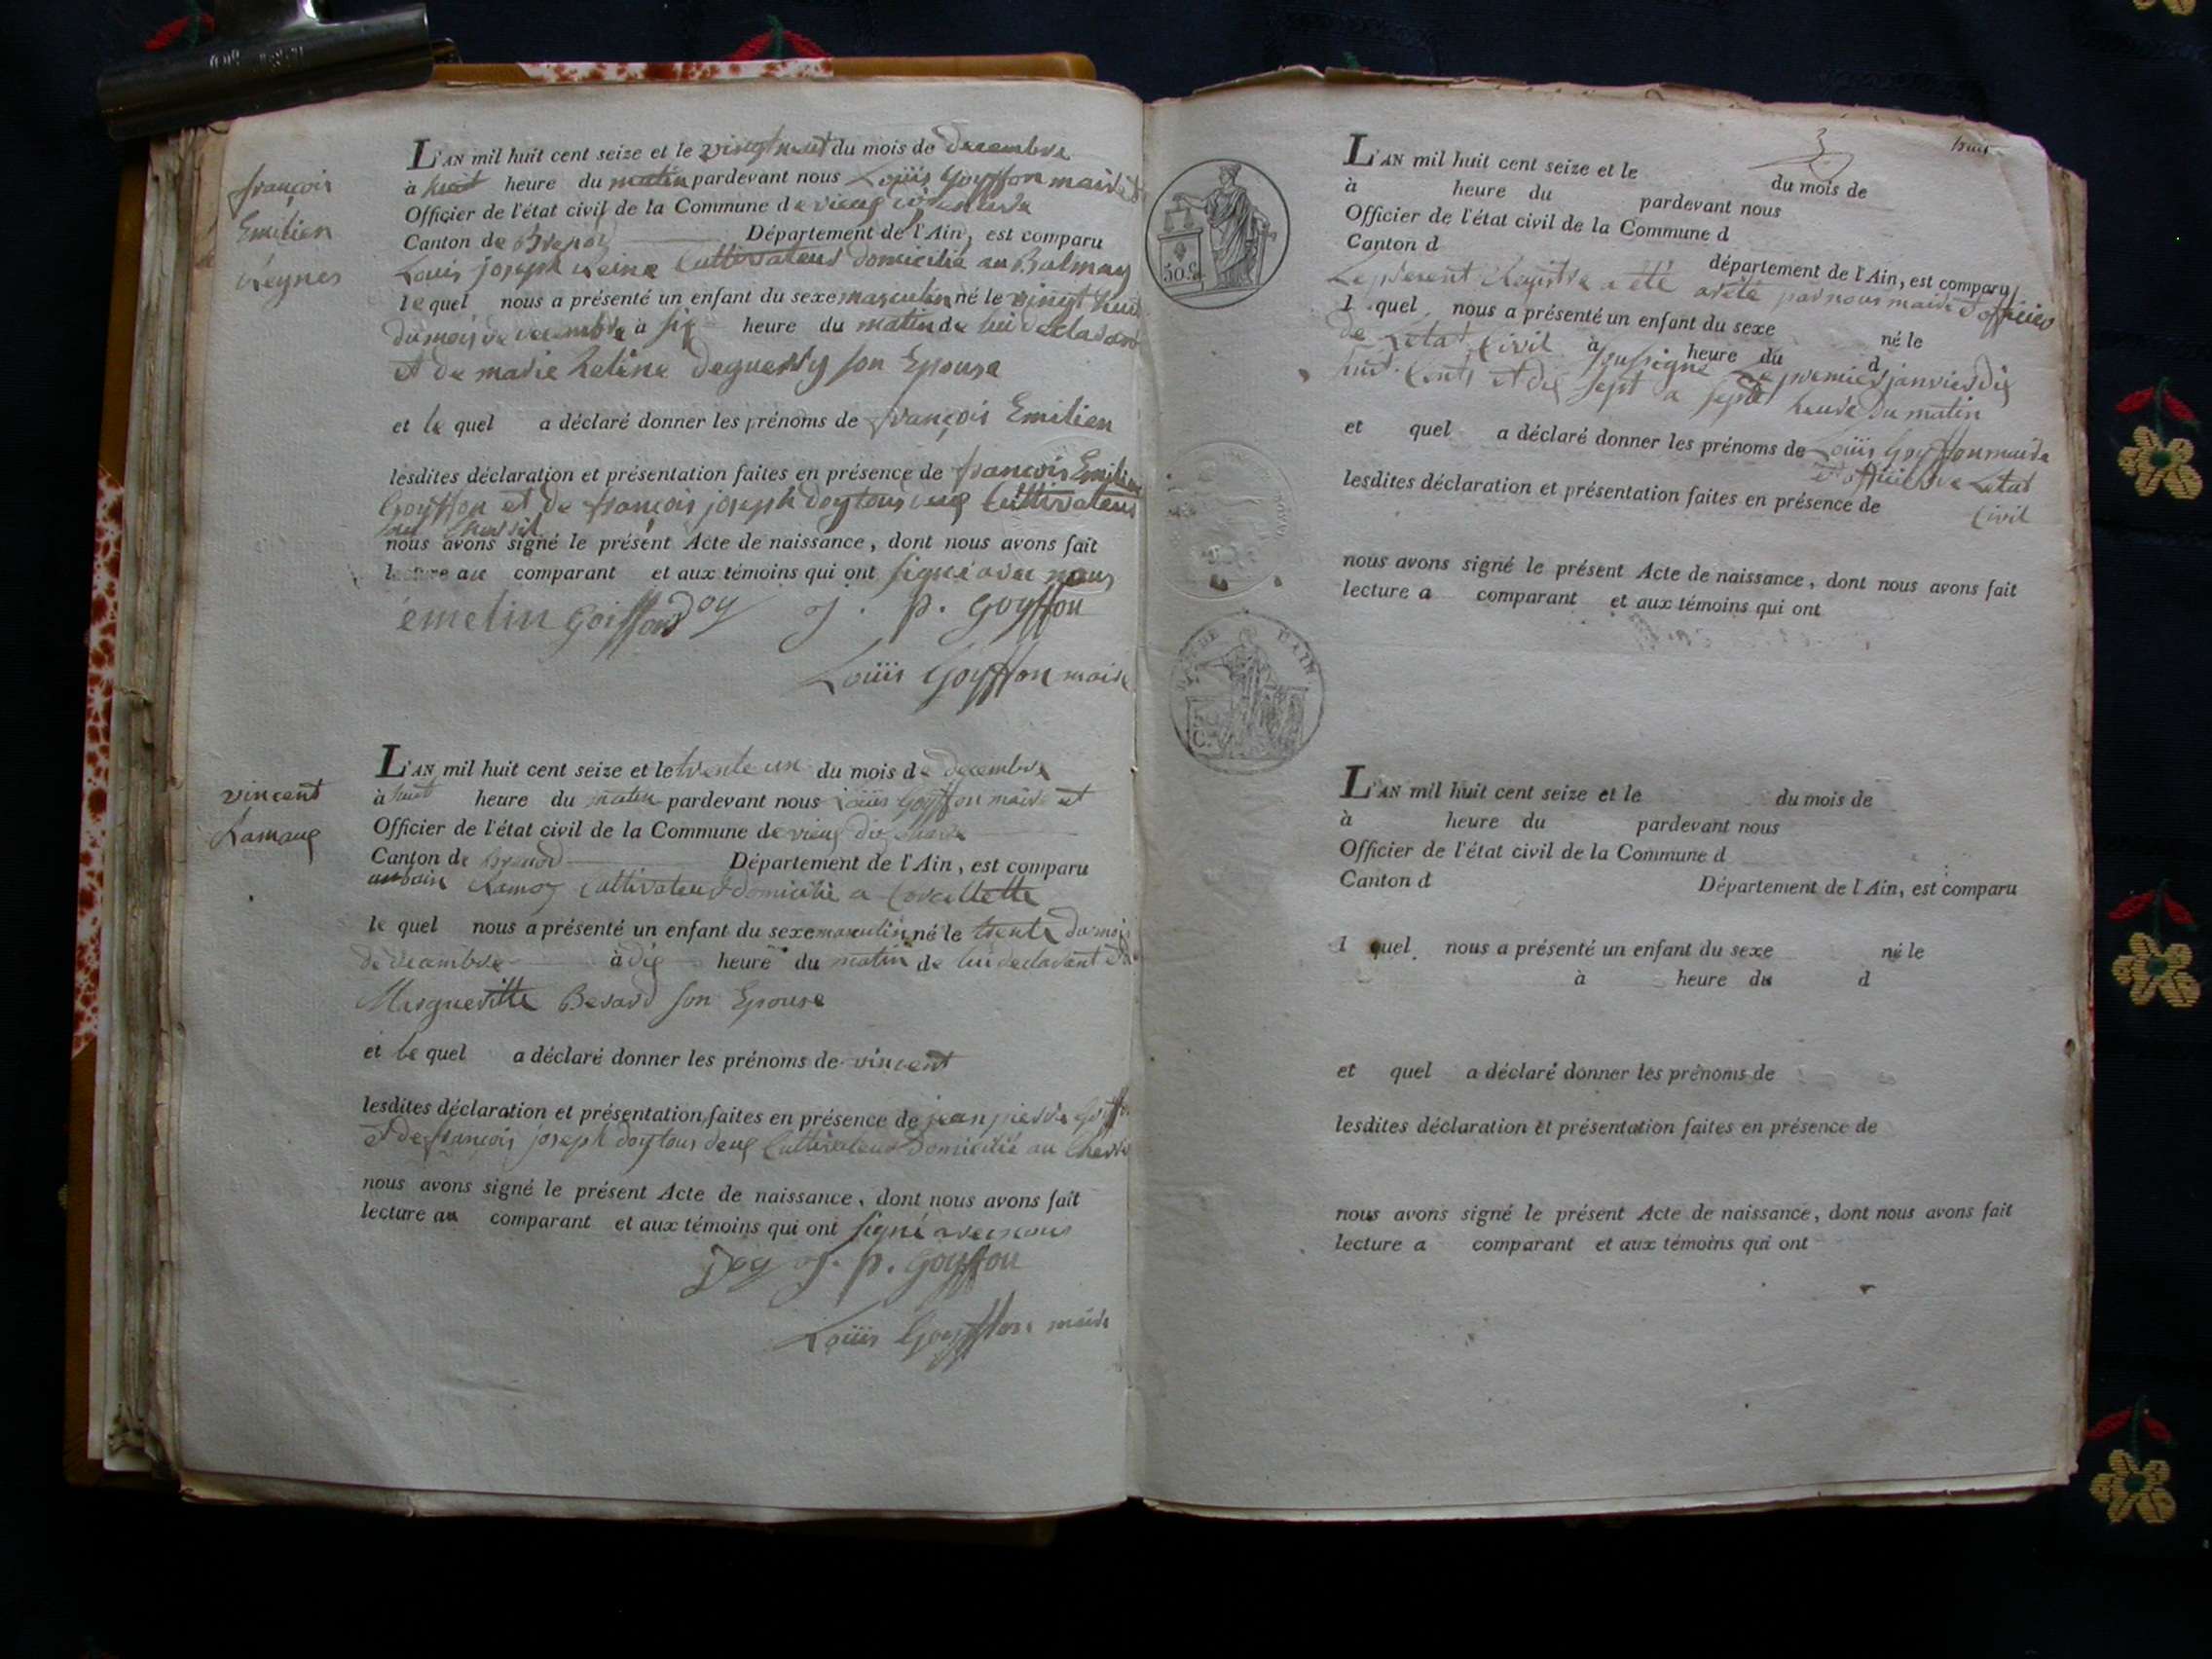 françois
Emilien
Reynes
L'AN mil huit cent seize et le vingt neuf du mois de decembre
à huit heure du matin pardevant nous Loüis Goyffon maire et
Officier de l'état civil de la Commune de vieux d'izenave
Canton de Brenod Département de l'Ain, est comparu
Louis joseph Reine Cultivateur domicilié au Balmay
le quel nous a présenté un enfant du sexe masculin né le vingt huit
du mois de decembre à six heure du matin de lui declarant
et de marie heline deguerry son Epouse
et le quel a déclaré donner les prénoms de françois Emilien
lesdites déclaration et présentation faites en présence de françois Emilien
Goyffon et de françois joseph doy tous deux Cultivateur
nous avons signé le présent Acte de naissance, dont nous avons fait
lecture au comparant et aux témoins qui ont signé avec nous
émelin Goiffon doy j. p. Goyffon
Loüis Goyffon maire
vincent
Ramaux
L'AN mil huit cent seize et le trente un du mois de decembre
à huit heure du matin pardevant nous Loüis Goyffon maire et
Officier de l'état civil de la Commune de vieux d'izenave
Canton de Brenod Département de l'Ain, est comparu
Cultivateur domicilié a Corcellette
le quel nous a présenté un enfant du sexe masculin né le trente du mois
de decembre à dix heure du matin de lui declarant et de
Margueritte Berard son Epouse
et le quel a déclaré donner les prénoms de vincent
lesdites déclaration et présentation faites en présence de jean pierre Goyff
et de françois joseph doy tous deux Cultivateur Domicilié au
nous avons signé le présent Acte de naissance, dont nous avons fait
lecture au comparant et aux témoins qui ont signé avec nous
doy j. p. Goyffon
Loüis Goyffon maire
3 trois
50 C.
L'AN mil huit cent seize et le du mois de
à heure du pardevant nous
Officier de l'état civil de la Commune d
Canton d département de l'Ain, est comparu
Le present Registre a été areté par nous maire et officier
l quel nous a présenté un enfant du sexe né le
de L'etat Civil soussigné Le premier janvier dix
à heure du d
huit Cents et dix sept a sept heure du matin
et quel a déclaré donner les prénoms de Loüis Goyffon maire
et officier de Letat
lesdites déclaration et présentation faites en présence de
Civil
nous avons signé le présent Acte de naissance, dont nous avons fait
lecture a comparant et aux témoins qui ont
DE L'AIN
L'AN mil huit cent seize et le du mois de
à heure du pardevant nous
Officier de l'état civil de la Commune d
Canton d Département de l'Ain, est comparu
l quel nous a présenté un enfant du sexe né le
à heure du d
et quel a déclaré donner les prénoms de
lesdites déclaration et présentation faites en présence de
nous avons signé le présent Acte de naissance, dont nous avons fait
lecture a comparant et aux témoins qui ont